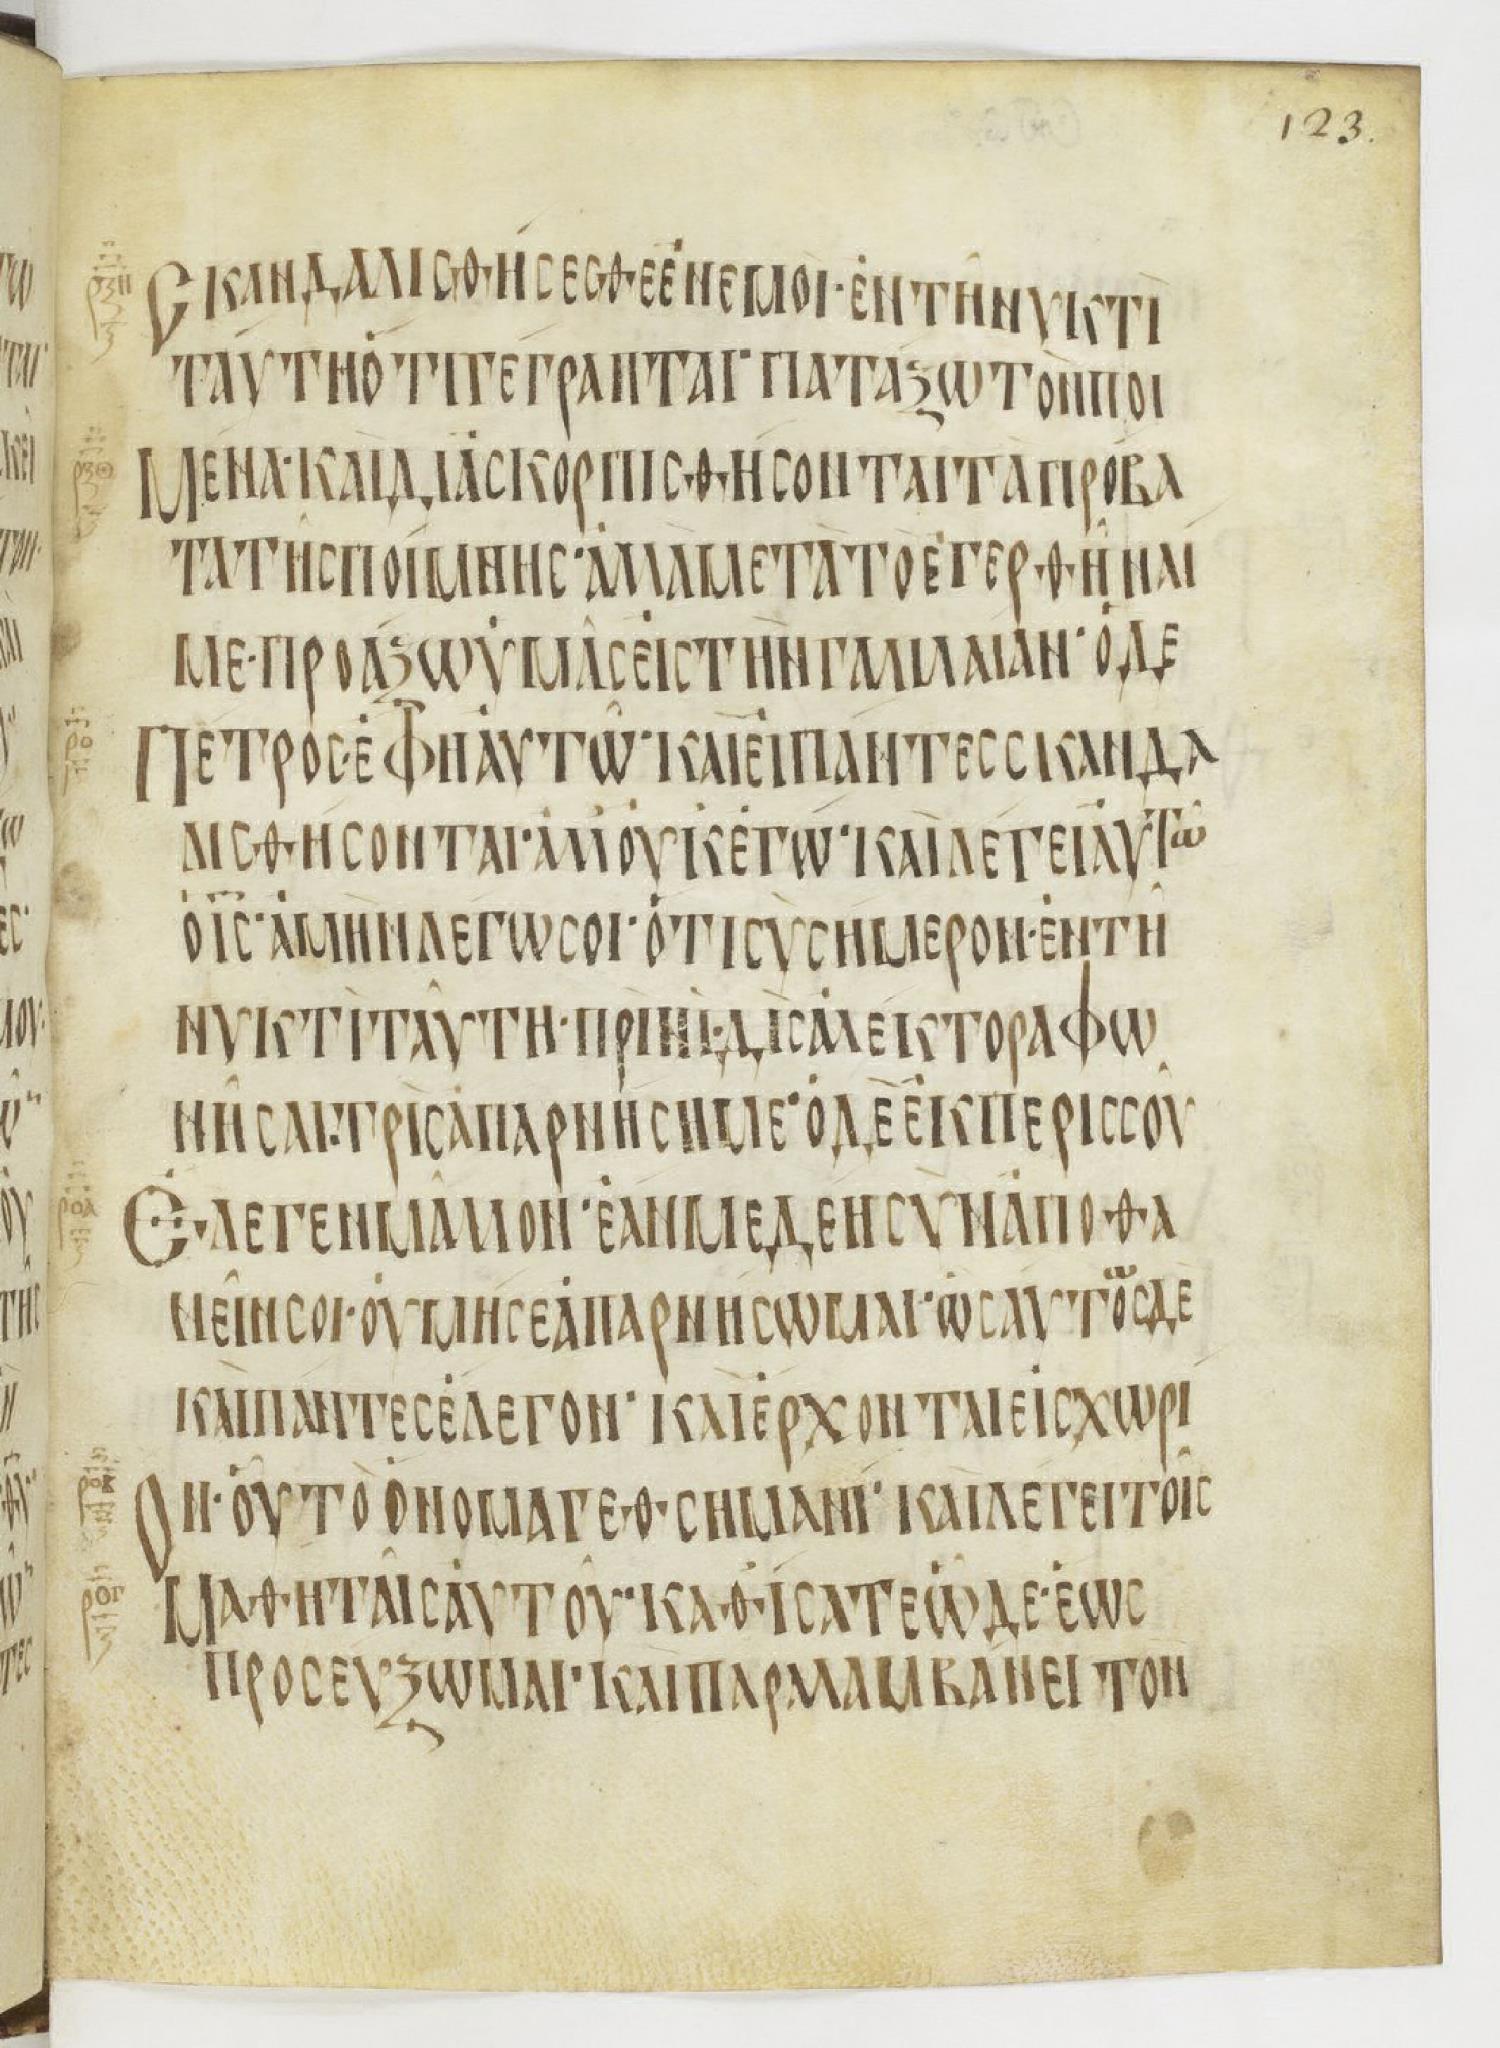 123.
СΚΑΝΔΑΛΙСΘΗСΕСΘΕἘΝΕΜΟῚ·ἘΝΤΗ͂ΝΥΚΤῚ
ΤΑΥΤΗὍΤΙΓΕΓΡΑΠΤΑΙ·ΠΑΤΑΞΩΤῸΝΠΟΙ
ΜΕΝΑ·ΚΑΙΔΙΑСΚΟΡΠΙСΘΗСΟΝΤΑΙΤΑΠΡΟΒΑ
ΤΑΤΗ͂СΠΟΙΜΝΗС·ἈΛΛΑΜΕΤΑΤΟἘΓΕΡΘΗ͂ΝΑΙ
ΜΕ·ΠΡΟΑΞΩὙΜΑ͂СἘΙСΤῊΝΓΑΛΙΛΑΙΑΝ·ὉΔΕ
ΠΕΤΡΟС·ἘΦΗἈΥΤΩ͂·ΚΑΙἘΙΠΑΝΤΕССΚΑΝΔΑ
ΛΙСΘΗСΟΝΤΑΙ·ἈΛΛΟΥΚἘΓΩ·ΚΑῚΛΕΓΕΙἈΥΤΩ͂
ὉΙС·ἈΜῊΝΛΕΓΩСΟΙ·ὍΤΙСῪСΗΜΕΡΟΝ·ἘΝΤΗ͂
ΝΥΚΤῚΤΑΥΤΗ·ΠΡῚΝΙ·ΔῚСἈΛΕΚΤΟΡΑΦΩ
ΝΗ͂СΑΙ·ΤΡῚСἈΠΑΡΝΗСΗΜΕ·ὉΔῈἘΚΠΕΡΙССΟΥ͂
Ἐ·ΛΕΓΕΝΜΑ͂ΛΛΟΝ·ἘΑΝΜΕΔΕΗСΥΝΑΠΟΘΑ
ΝΕΙ͂ΝСΟΙ·ὀΥΜΗСΕἈΠΑΡΝΗСΩΜΑΙ·ὩСΑΥΤΟωСΔΕ
ΚΑῚΠΑΝΤΕСἘΛΕΓΟΝ·ΚΑῚἘΡΧΟΝΤΑΙΕΙСΧΩΡΙ
ΟΝ·ὉΥΤῸὈΝΟΜΑΓΕΘСΗΜΑΝΙ·ΚΑῚΛΕΓΕΙΤΟΙ͂С
ΜΑΘΗΤΑΙ͂СἈΥΤΟΥ͂·ΚΑΘΙСΑΤΕὩΔΕ·ἘΩС
ΠΡΟСΕΥΞΩΜΑΙ·ΚΑῚΠΑΡΜΑΛΜΒΑΝΕΙΤῸΝ